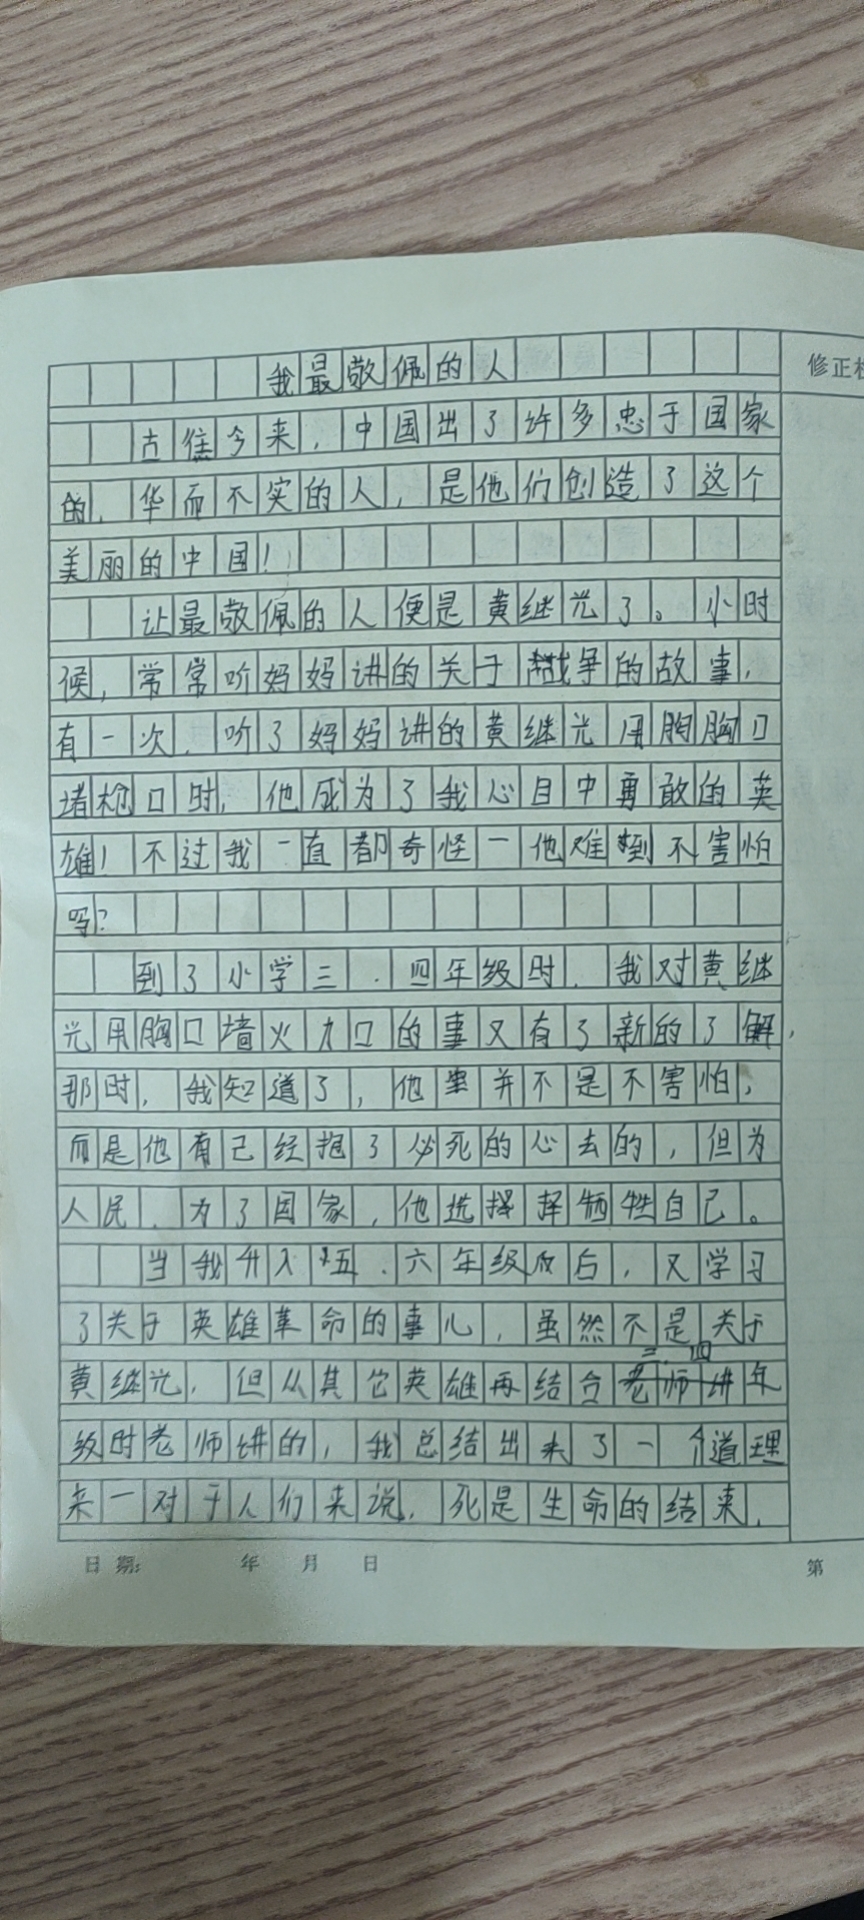 我最敬佩的人
修正栏
古焦今来，中国出了许多忠于国家
的，华而不实的人，是他们创造了这个
美丽的中国！
让最敬佩的人便是黄继光了。小时
候，常常听妈妈讲的关于战争的故事，
有一次，听了妈妈讲的黄继光用胸胸口
堵枪口时，他成为了我心目中勇敢的英
雄！不过我一直都奇怪一他难到不害怕
吗？
到了小学三、四年级时，我对黄继
光用胸口墙火力口的事又有了新的了解，
那时，我知道了，他并不是不害怕，
而是他有已经抱了必死的心去的，但为
人民、为了国家，他选择择牺牲自己。
当我升入五、六年级后，又学习
了关于英雄革命的事儿，虽然不是关于
三、四
黄继光，但从其它英雄再结合老师讲年
级时老师讲的，我总结出来了一个道理
来一对于人们来说，死是生命的结束，
日期: 年 月 日
第